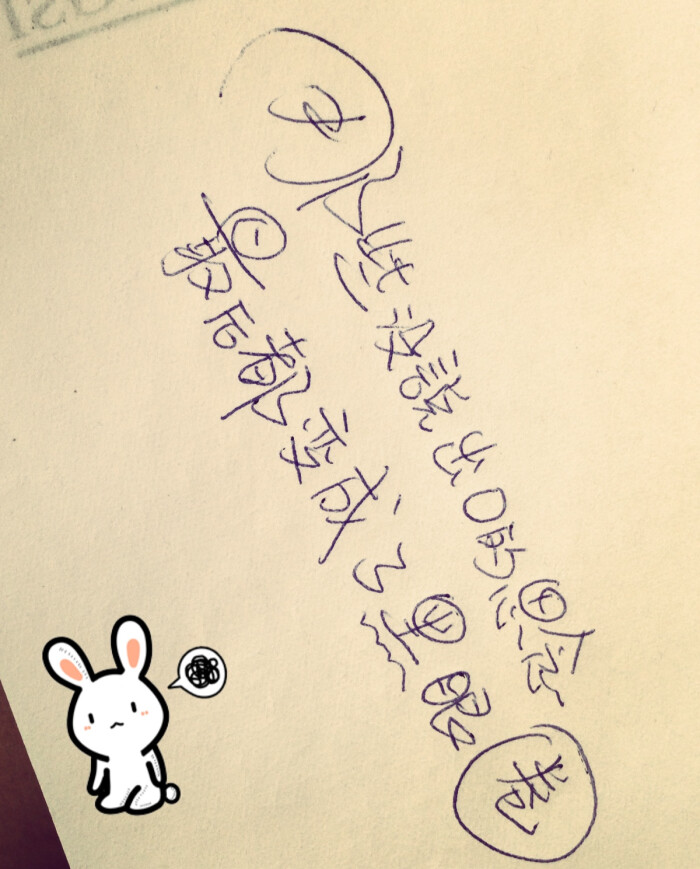 那些没説出口的思念
最后都变成了黑眼圈